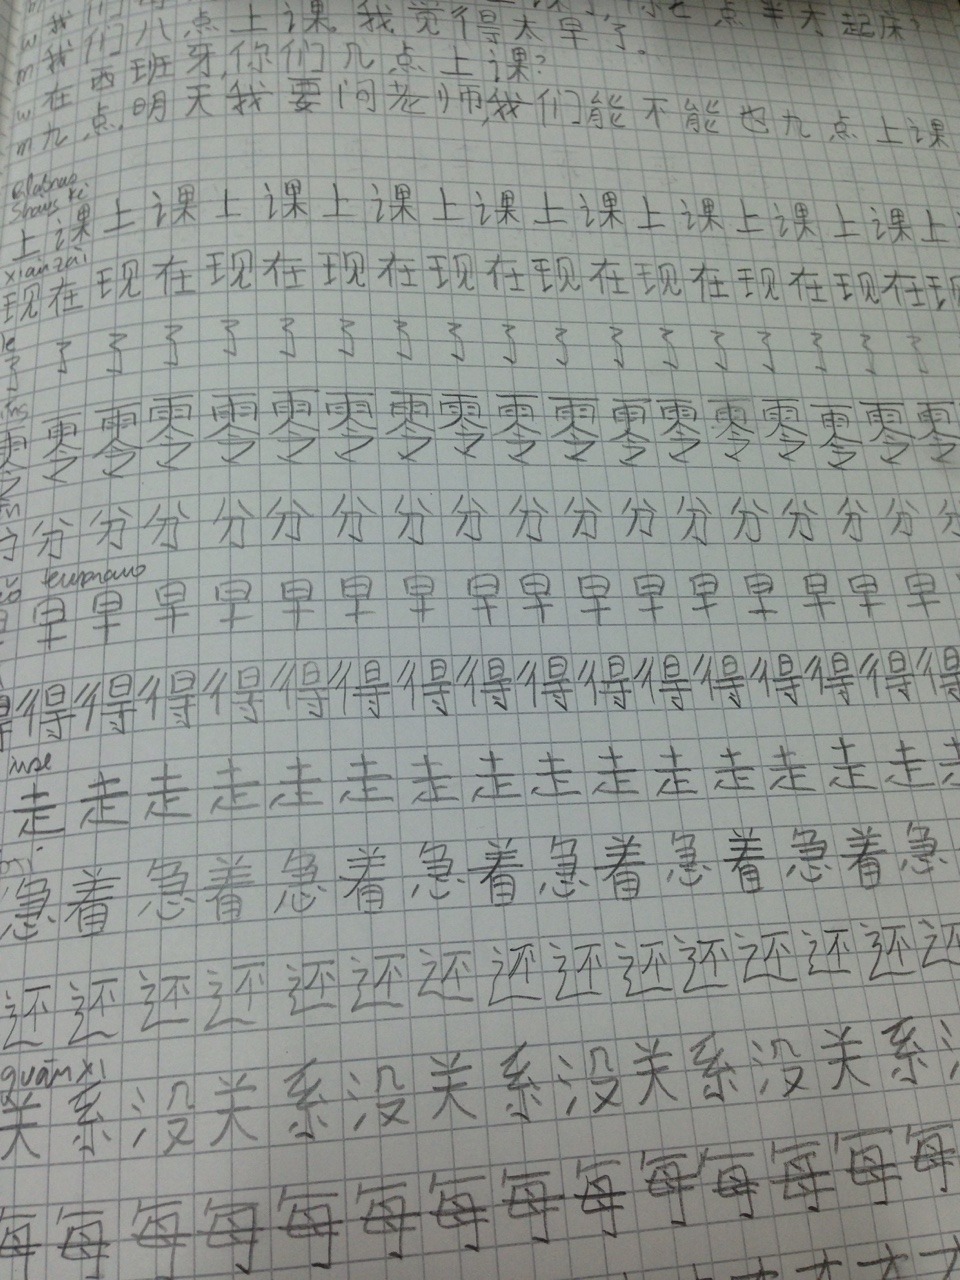 点半大起床?
w 我们八点上课.我觉得太早了。
m 在西班牙,你们几点上课?
m 九点.明天我要问老师,我们能不能也九点上课
上课上课上课上课上课上课上课上课上
xianzai
现在现在现在现在现在现在现在现在现在现
le
了了了了了了了了了了了了了了了了了
零零零零零零零零零零零零零零零零零零
分分分分分分分分分分分分分分分分分
temprano
早早早早早早早早早早早早早早早早
得得得得得得得得得得得得得得得得
走走走走走走走走走走走走走走走
急着急着急着急着急着急着急着急
还还还还还还还还还还还还还还还
guānxi
关系没关系没关系没关系没关系
每每每每每每每每每每每每每每